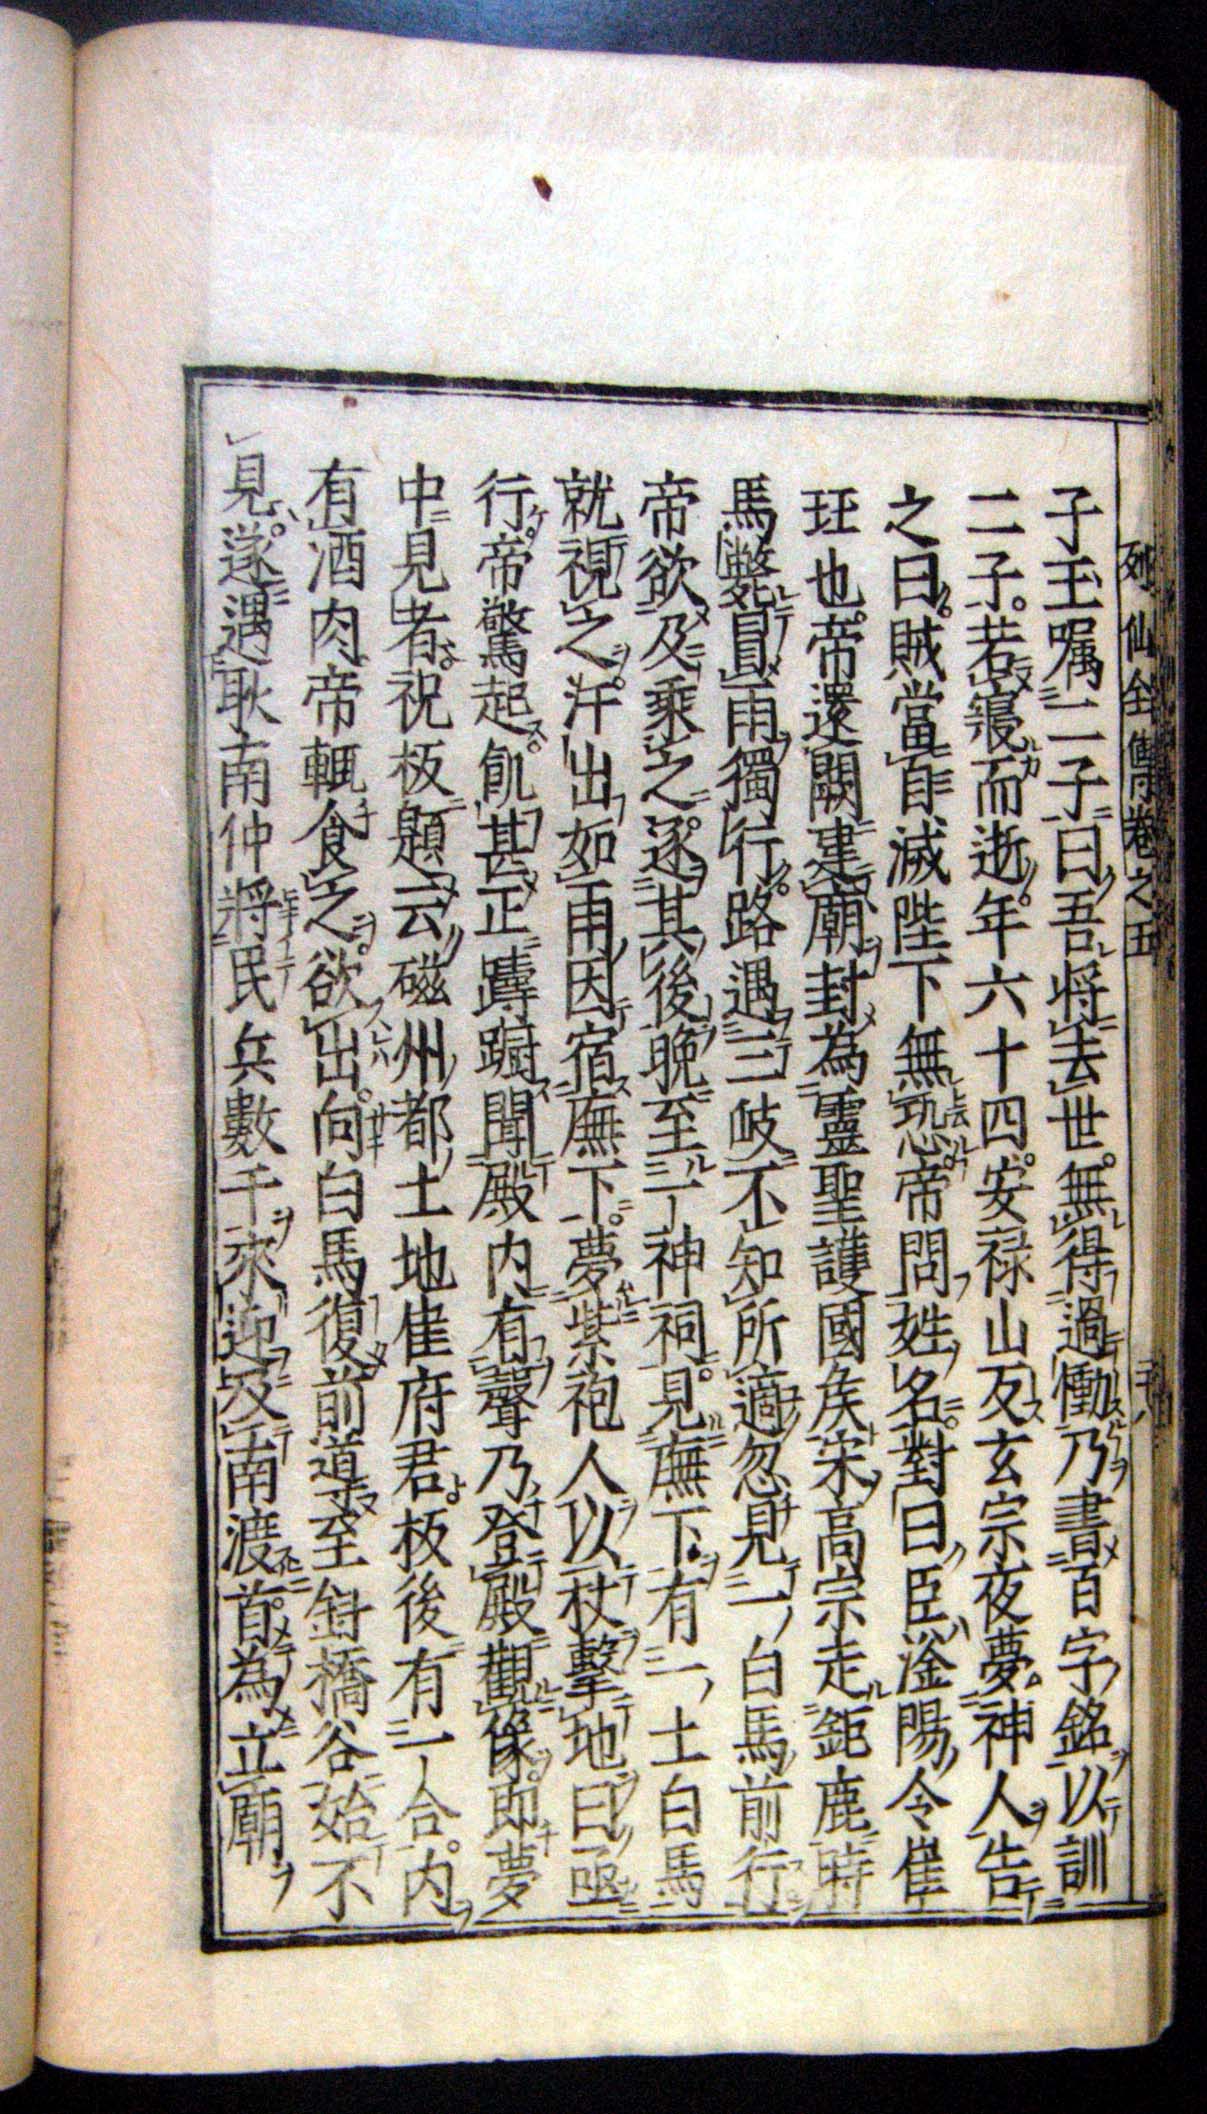 列仙全傳卷之五
子玉囑二子曰吾將去世無得過慟乃書百字銘以訓
二子若寢而逝年六十四安禄山反玄宗夜夢神人告
之曰賊當自滅陛下無恐帝問姓名對曰臣滏陽令崔
珏也帝還闕建廟封為靈聖護國侯宋高宗走鉅鹿時
馬斃冒雨獨行路遇三岐不知所適忽見一白馬前行
帝欲及乗之逐其後晚至一神祠見廡下有一土白馬
就視之汗出如雨因宿廡下夢紫袍人以杖擊地曰亟
行帝驚起飢甚正躊躕聞殿内有聲乃登殿觀像即夢
中見者祝板題云磁州都土地崔府君板後有一合内
有酒肉帝輒食之欲出向白馬復前導至斜橋谷始不
見遂遇耿南仲將民兵數千來迎及南渡首為立廟